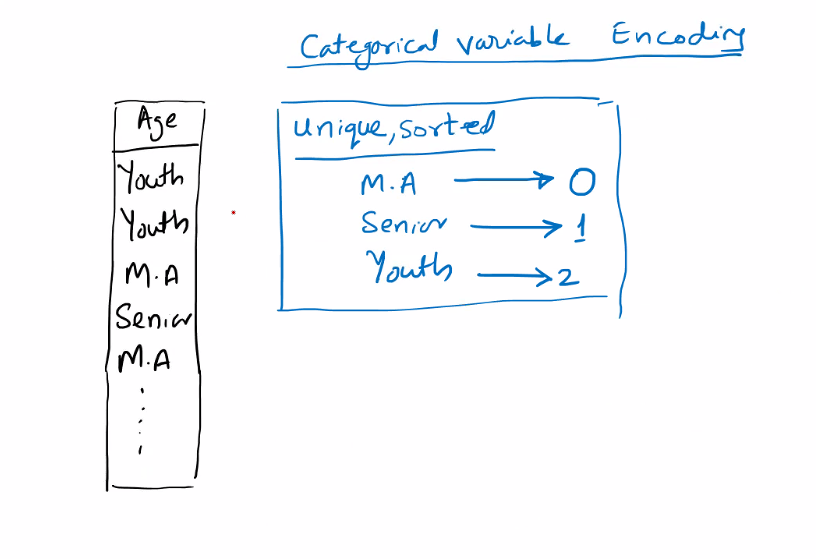 Categorical variable Encoding
Age
Youth
Youth
M.A
Senior
M.A
unique, sorted
M.A → 0
Senior → 1
Youth → 2